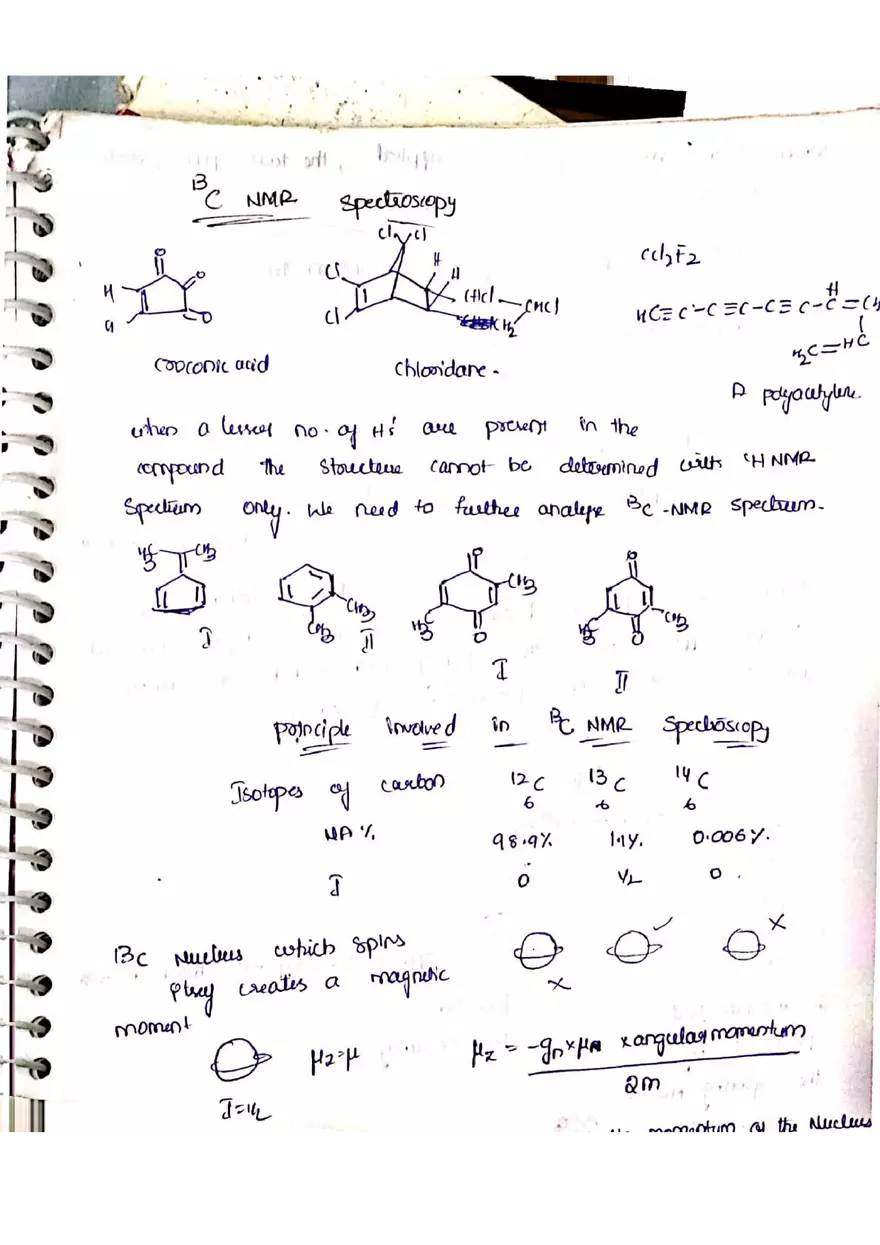 13C NMR Spectroscopy
Cl Cl
O
O
H
O
Cl
Cl
H
H
CHCl
CHCl
CH2
CCl2F2
HC≡C-C≡C-C≡C-C=CH
H
H2C=HC
Croconic acid
Chloridane.
A polyacetylene.
when a lesser no. of H's are present in the
compound the structure cannot be determined with 1H NMR
Spectrum only. We need to further analyse 13C-NMR spectrum.
H3C CH3
CH3
CH3
O
CH3
H3C
O
O
CH3
H3C
O
I
II
I
II
Principle involved in 13C NMR Spectroscopy
Isotopes of carbon 12 6 C 13 6 C 14 6 C
NA % 98.9% 1.1%. 0.006%.
I 0 1/2 0.
13C Nucleus which spins
creates a magnetic
moment
I=1/2
μz=μ
μz = -gn×μn × angular momentum
2m
momentum of the Nucleus